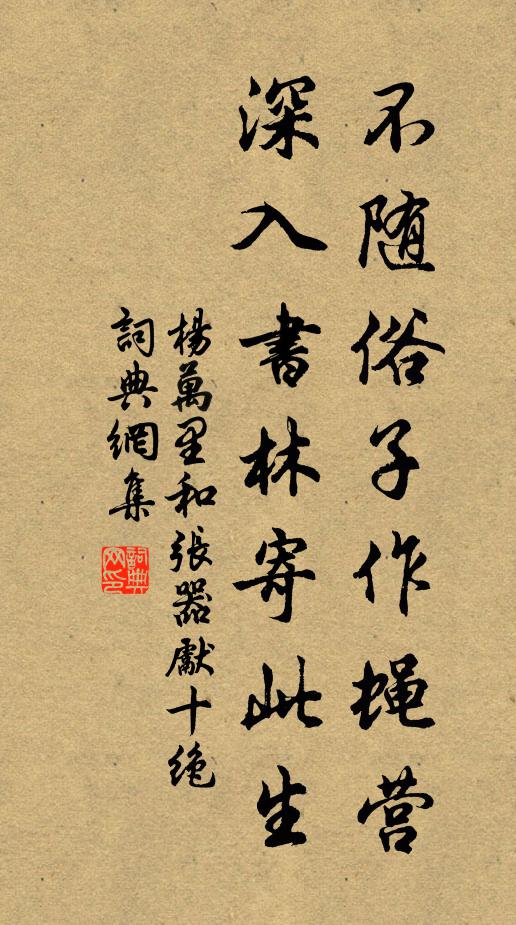 不随俗子作蝇营
深入書林寄此生
楊萬里和張器獻十绝
詞典網集
詞典网印